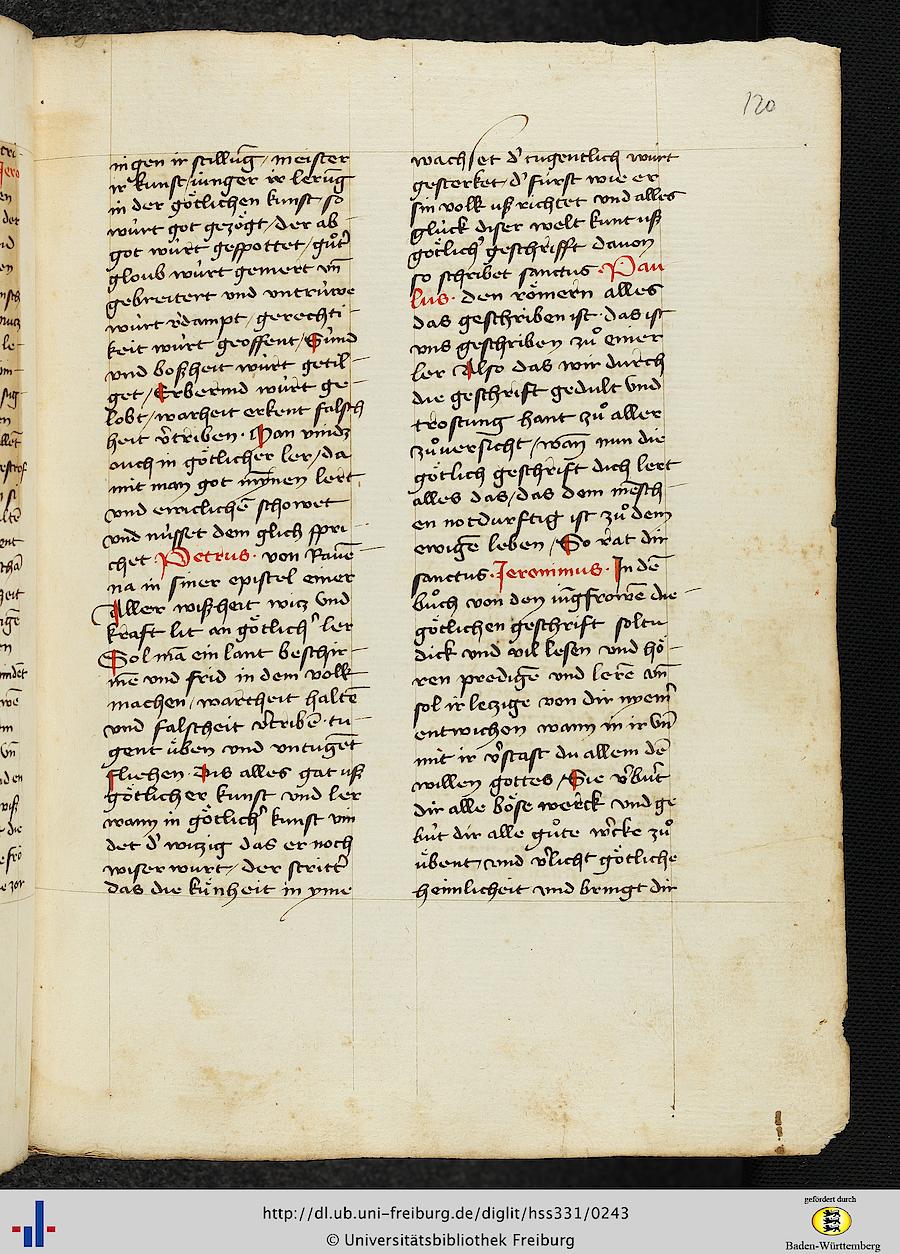 120
in gen ir stillūg / meister
ir kunst / iunger ir lerūg
in der götlichen kunst / so
würt got gezögt / der ab
got würt gespottet / gůt
gloub würt gemert vn̄
gebreitert vnd vntrüwe
würt v̓dampt / gerechti
keit würt geoffent / Sünd
vnd boßheit würt getil
get / Erbermd würt ge
lobt / warheit erkent falsch
heit v̓triben · Man vindz
ouch in götlicher ler / da
mit man got
vnd ewiclichē schowet
vnd nüsset dem glich spri
chet Petrus · von Rauē
na in siner epistel einer
Aller wißheit wicz vnd
kraft lit an götlich̓ ler
Sol mā ein lant beschir
mē vnd frid in dem volk
machen / warheit haltē
vnd falscheit v̓tribē · tu
gent üben vnd vntugēt
fliehen · Dis alles gat uß
götlicher kunst vnd ler
wann in götlich̓ kunst vin
det d̓ wiczig das er noch
wiser wurt / der
das die künheit in yme
wachset d̓ tugentlich wurt
gesterket · d̓ fürst wie er
sin volk uß richtet vnd alles
glück diser welt kunt uß
götlich̓ geschrifft dauon
so schribet sanctus · Pau
lus · den römern alles
das geschriben ist · das ist
vns geschriben zů einer
ler Also das wir durch
die geschrift gedult vnd
trostung hant zů aller
zůversicht / wan nun die
götlich geschrift dich lert
alles das / das dem mēsch
en notdurftig ist zů dem
ewigē leben / So rat dir
sanctus · Jeronimus · In dē
bůch von den iūgfrowē die
götlichen geschrift soltu
dick vnd vil lesen vnd hö
ren predigē vnd lerē vn̄
sol ir leczige von dir nyem̓
entwichen wann in ir vn̄
mit ir v̓stast du allem dē
willen gottes / Sie v̓büt
dir alle böse werck vnd ge
büt dir alle gůte w̓cke zů
übent vnd v̓licht götliche
heimlicheit vnd bringt dir
http://dl.ub.uni-freiburg.de/diglit/hss331/0243
© Universitätsbibliothek Freiburg
gefördert durch
Baden-Württemberg